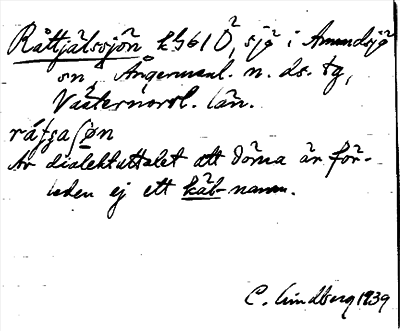 Råttjälssjön k561Ö, sjö i Amundsjö
sn, Ångermanl. n. ds. tg,
Västernorrl. län.
Av dialektuttalet att döma är för-
leden ej ett kåb-namn.
C. Lindberg 1939